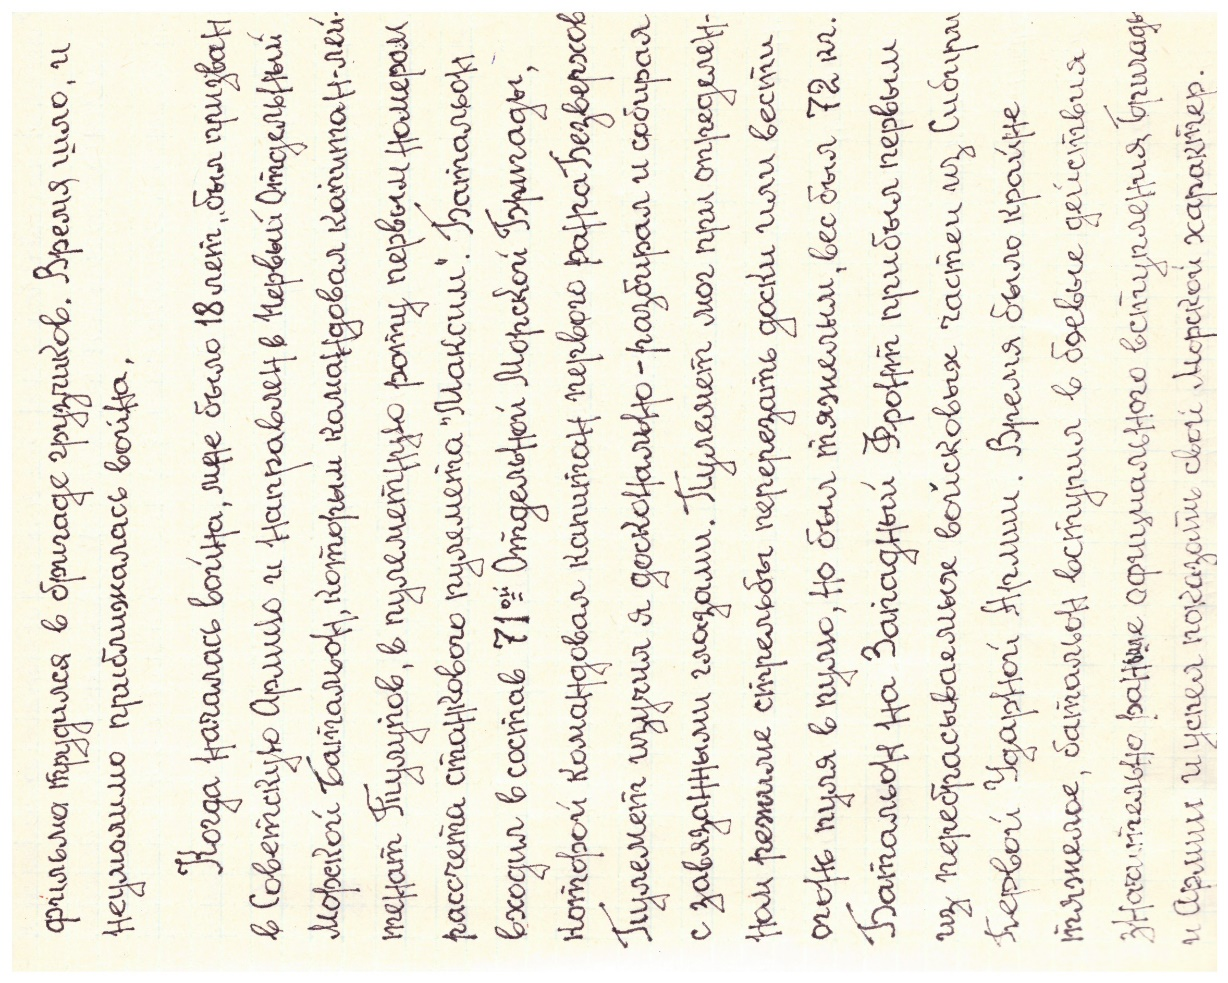 фильма трудился в бригаде грузчиков. Время шло, и
неумолимо приближалась война.
Когда началась война, мне было 18 лет, был призван
в Советскую Армию и направлен в Первый Отдельный
Морской Батальон, которым командовал капитан-лей-
тенант Тулупов, в пулеметную роту первым номером
рассчета станкового пулемета "Максим". Батальон
входил в состав 71ой Отдельной Морской Бригады,
которой командовал капитан первого ранга Безверхов
Пулемет изучил я досконально - разбирал и собирал
с завязанными глазами. Пулемет мог при определен-
ном режиме стрельбы перерезать доски или вести
огонь пуля в пулю, но был тяжелым, вес был 72 кг.
Батальон на Западный Фронт прибыл первым
из перебрасываемых войсковых частей из Сибири
Первой Ударной Армии. Время было крайне
тяжелое, батальон вступил в боевые действия
значительно раньше официального вступления Бригады
и Армии и успел показать свой Морской характер.